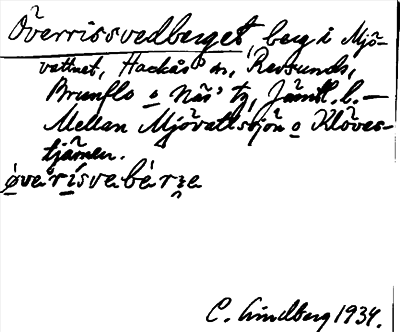 Överrissvedberget, berg i Mjö-
vattnet, Hackås sn, Revsunds,
Brunflo o Näs' tg, Jämtl. l. —
Mellan Mjövattssjön o Klöves-
tjärnen.
øverísvebérʒe
C. Lindberg 1934.